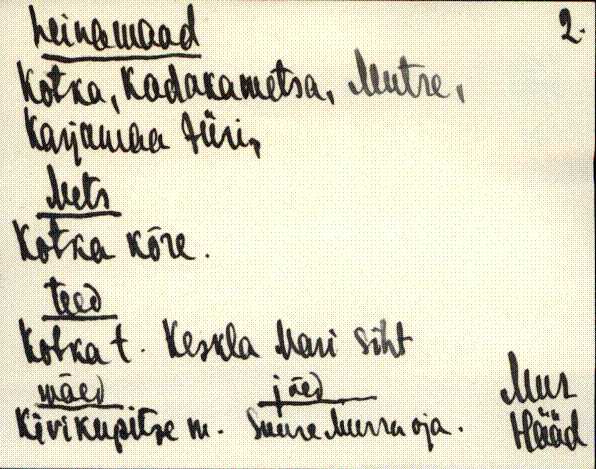 heinamaad 2.
Kotka, Kadakametsa, Mutre,
Karjamaa Jüri,
Mets
Kotka kõre.
teed
Kotka t. Keskla Mari siht
mäed jõed
Kivikupitse m. Suure Murru oja.
Mus
Hääd